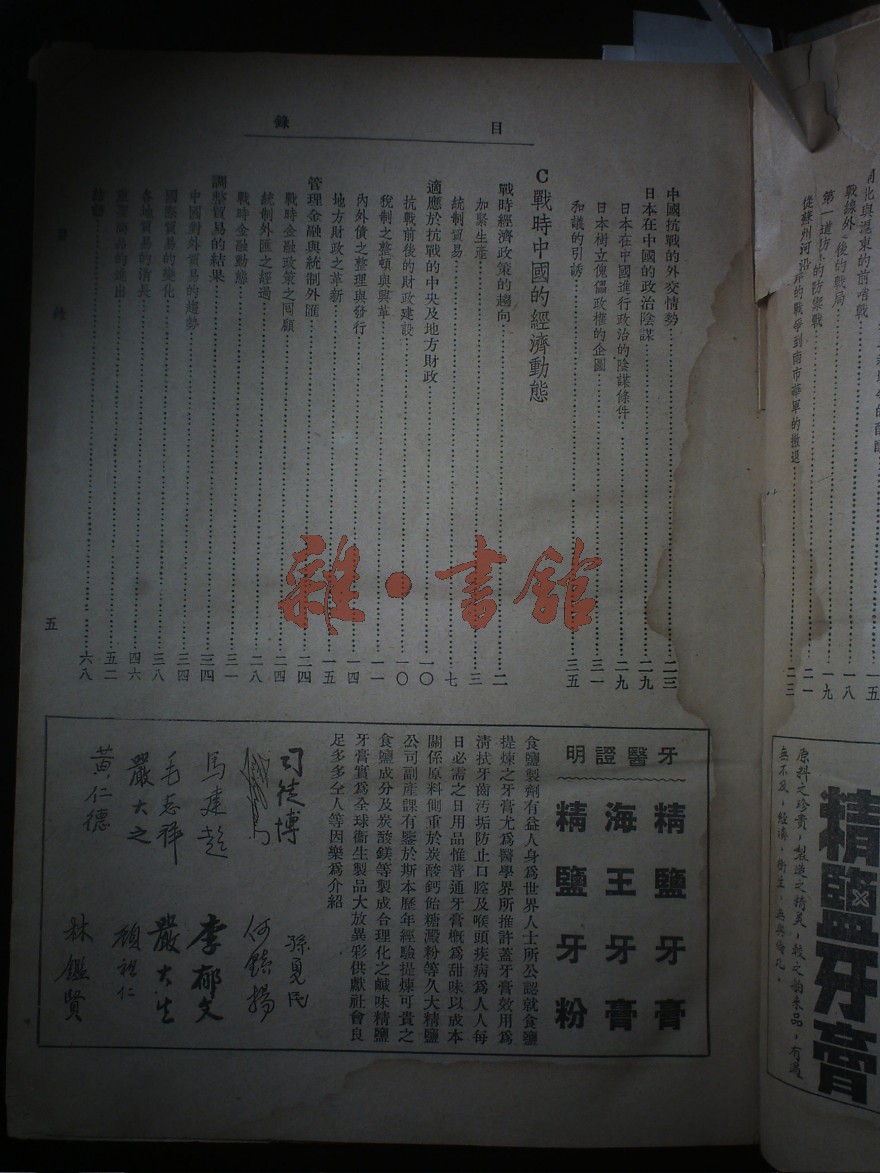 目錄
中國抗戰的外交情勢 二三
日本在中國的政治陰謀 二九
日本在中國進行政治的陰謀條件 二九
日本樹立傀儡政權的企圖 三一
和議的引誘 三五
C 戰時中國的經濟動態
戰時經濟政策的趨向 二
加緊生產 三
統制貿易 七
適應於抗戰的中央及地方財政 一〇
抗戰前後的財政建設 一〇
稅制之整頓與興革 一一
內外債之整理與發行 一四
地方財政之革新 一五
管理金融與統制外匯 二四
戰時金融政策之回顧 二四
統制外匯之經過 二八
戰時金融動態 三一
調整貿易的結果 三四
中國對外貿易的趨勢 三四
國際貿易的變化 三八
各地貿易的消長 四六
五二
六八
五
牙醫證明
精鹽牙膏
海王牙膏
精鹽牙粉
食鹽製劑有益人身為世界人士所公認就食鹽
提煉之牙膏尤為醫學界所推許蓋牙膏效用為
清拭牙齒污垢防止口腔及喉頭疾病為人人每
日必需之日用品惟普通牙膏概為甜味以成本
關係原料側重於炭酸鈣飴糖澱粉等久大精鹽
公司副產課有鑒於斯本歷年經驗提煉可貴之
食鹽成分及炭酸鎂等製成合理化之鹹味精鹽
牙膏質為全球衛生製品大放異彩供獻社會良
足多多仝人等因樂為介紹
司徒博
孫勇民
馬建趁
李郁文
毛志祥
嚴大生
嚴大之
顧祖仁
黃仁德
林鑑賢
雜·書館
北與滬東的前哨戰 一五
戰線外 後的戰局 一八
第一道防 的防禦戰 一九
從蘇州河沿 的戰爭到南市華軍的撤退 二一
二三
精鹽牙膏
原料之珍貴，製造之精美，較之舶來品，有過
無不及，經濟，衛生，無與倫比。